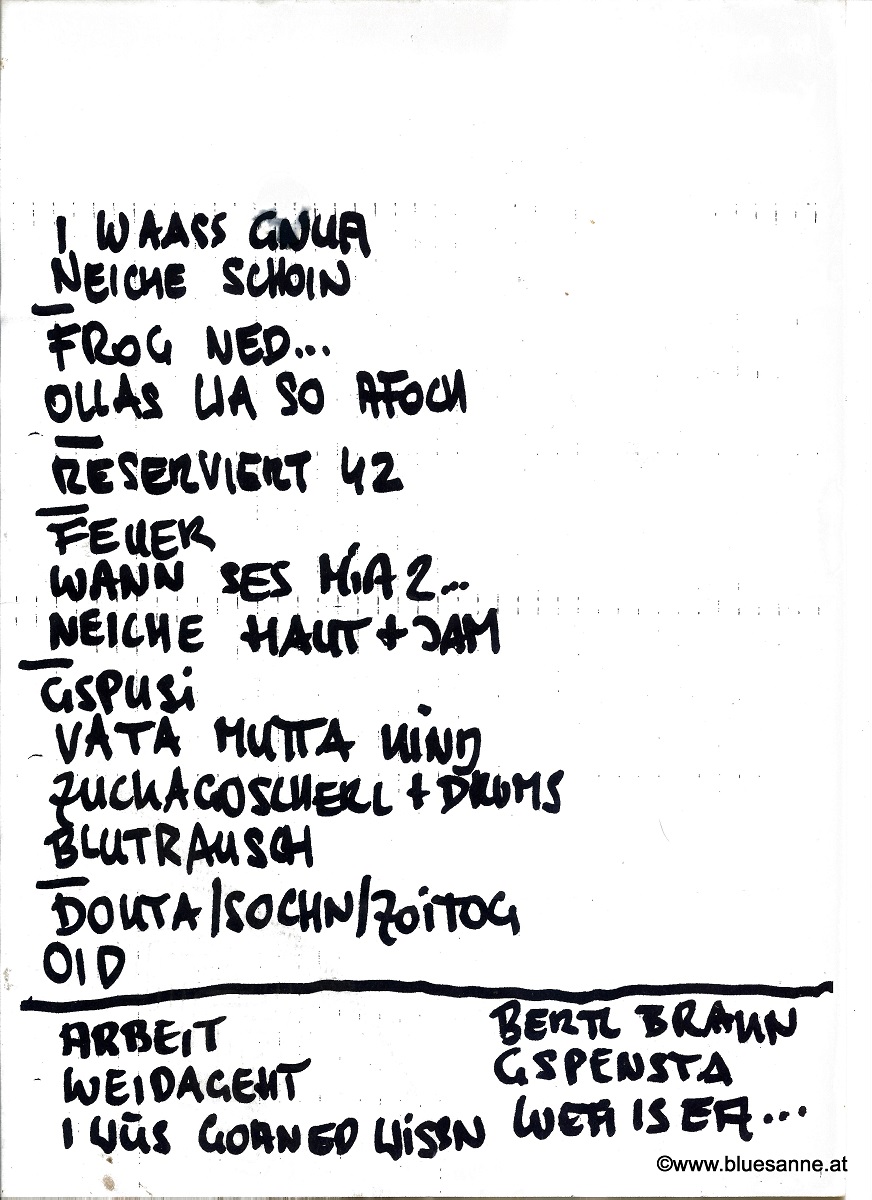 I WAASS GNUA
NEICHE SCHOIN
FROG NED...
OLLAS WA SO AFOCH
RESERVIERT 42
FEUER
WANN SES MiA 2...
NEICHE HAUT + JAM
GSPUSi
VATA MUTTA KIND
ZUCKAGOSCHERL + DRUMS
BLUTRAUSCH
DOKTA/SOCHN/ZOiTOG
OID
ARBEiT
WEIDAGEHT
I WÜS GOANED WISSN
BERTL BRAUN
GSPENSTA
WEA IS EA...
©www.bluesanne.at